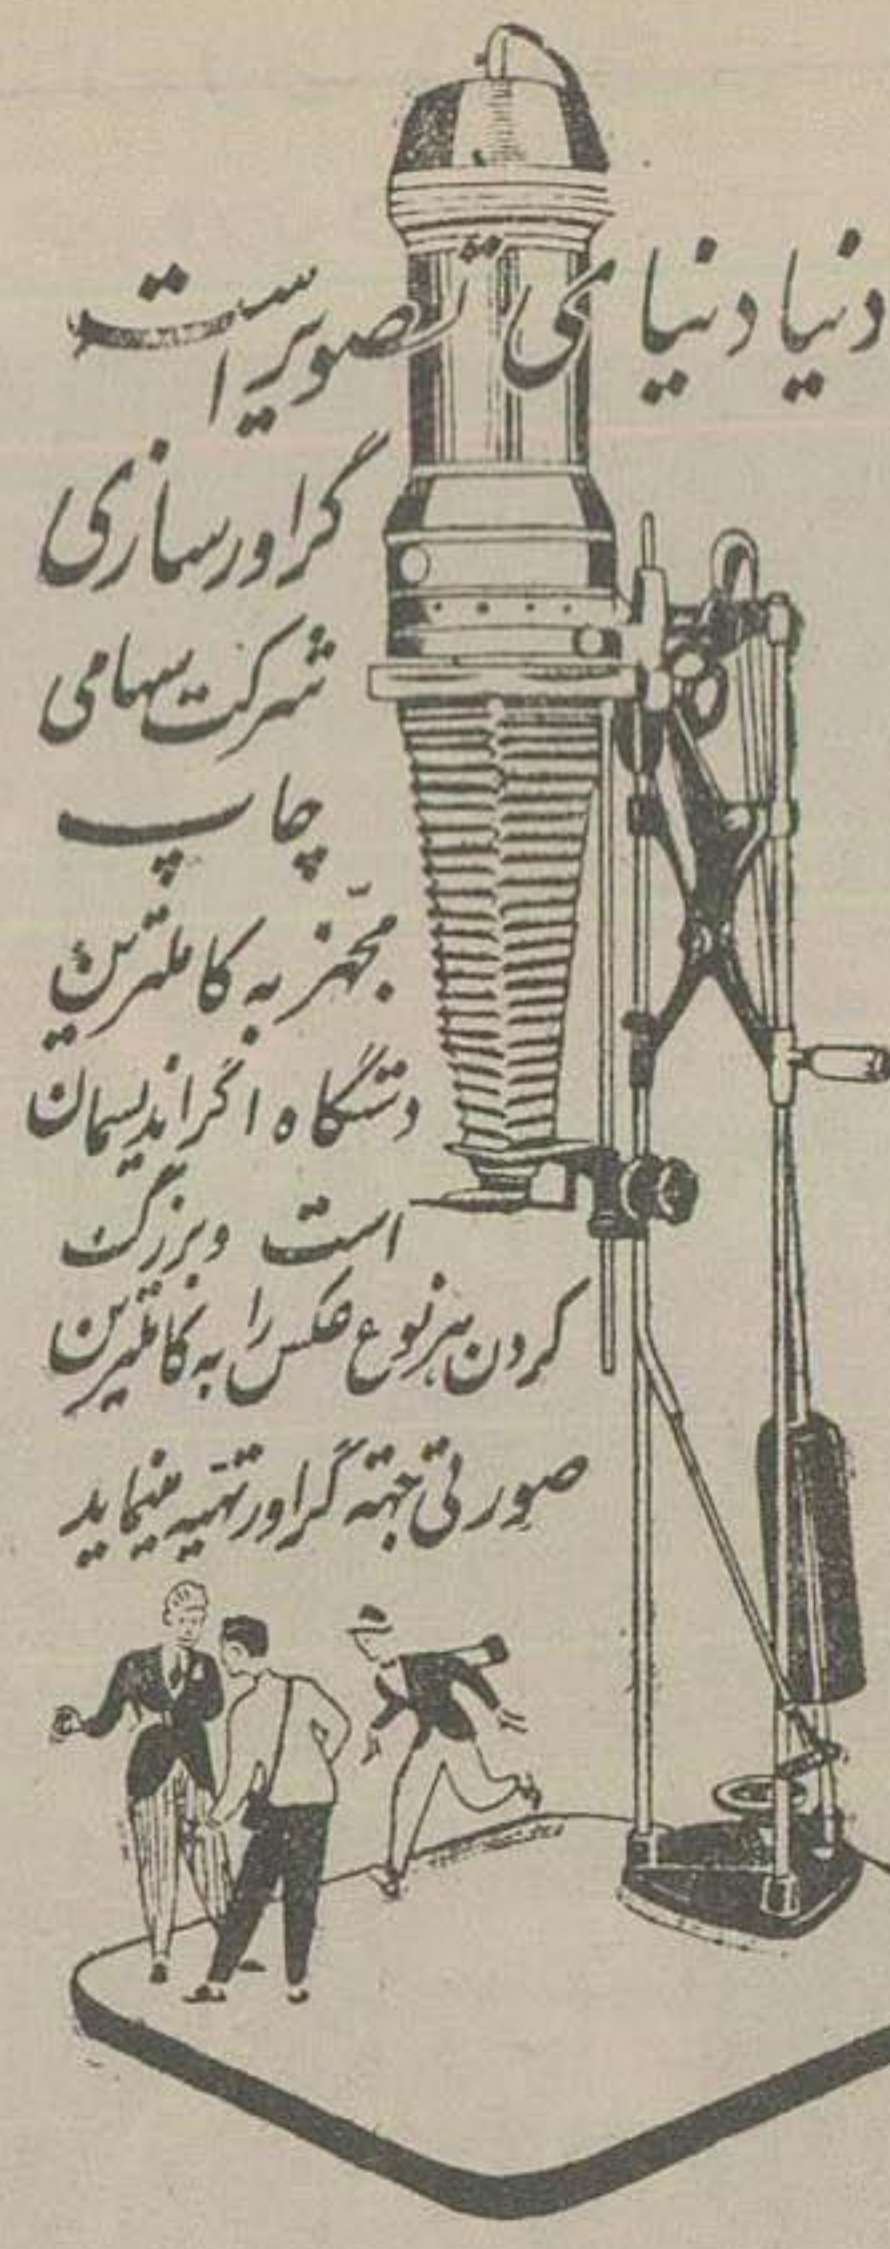 دنیا دنیای تصویر است
گراورسازی
شرکت سهامی
چاپ
مجّهز به کاملترین
دستگاه اگراندیسمان
است وبزرگ
کردن هر نوع عکس را به کاملترین
صورتی جهته گراور تهیّه مینماید